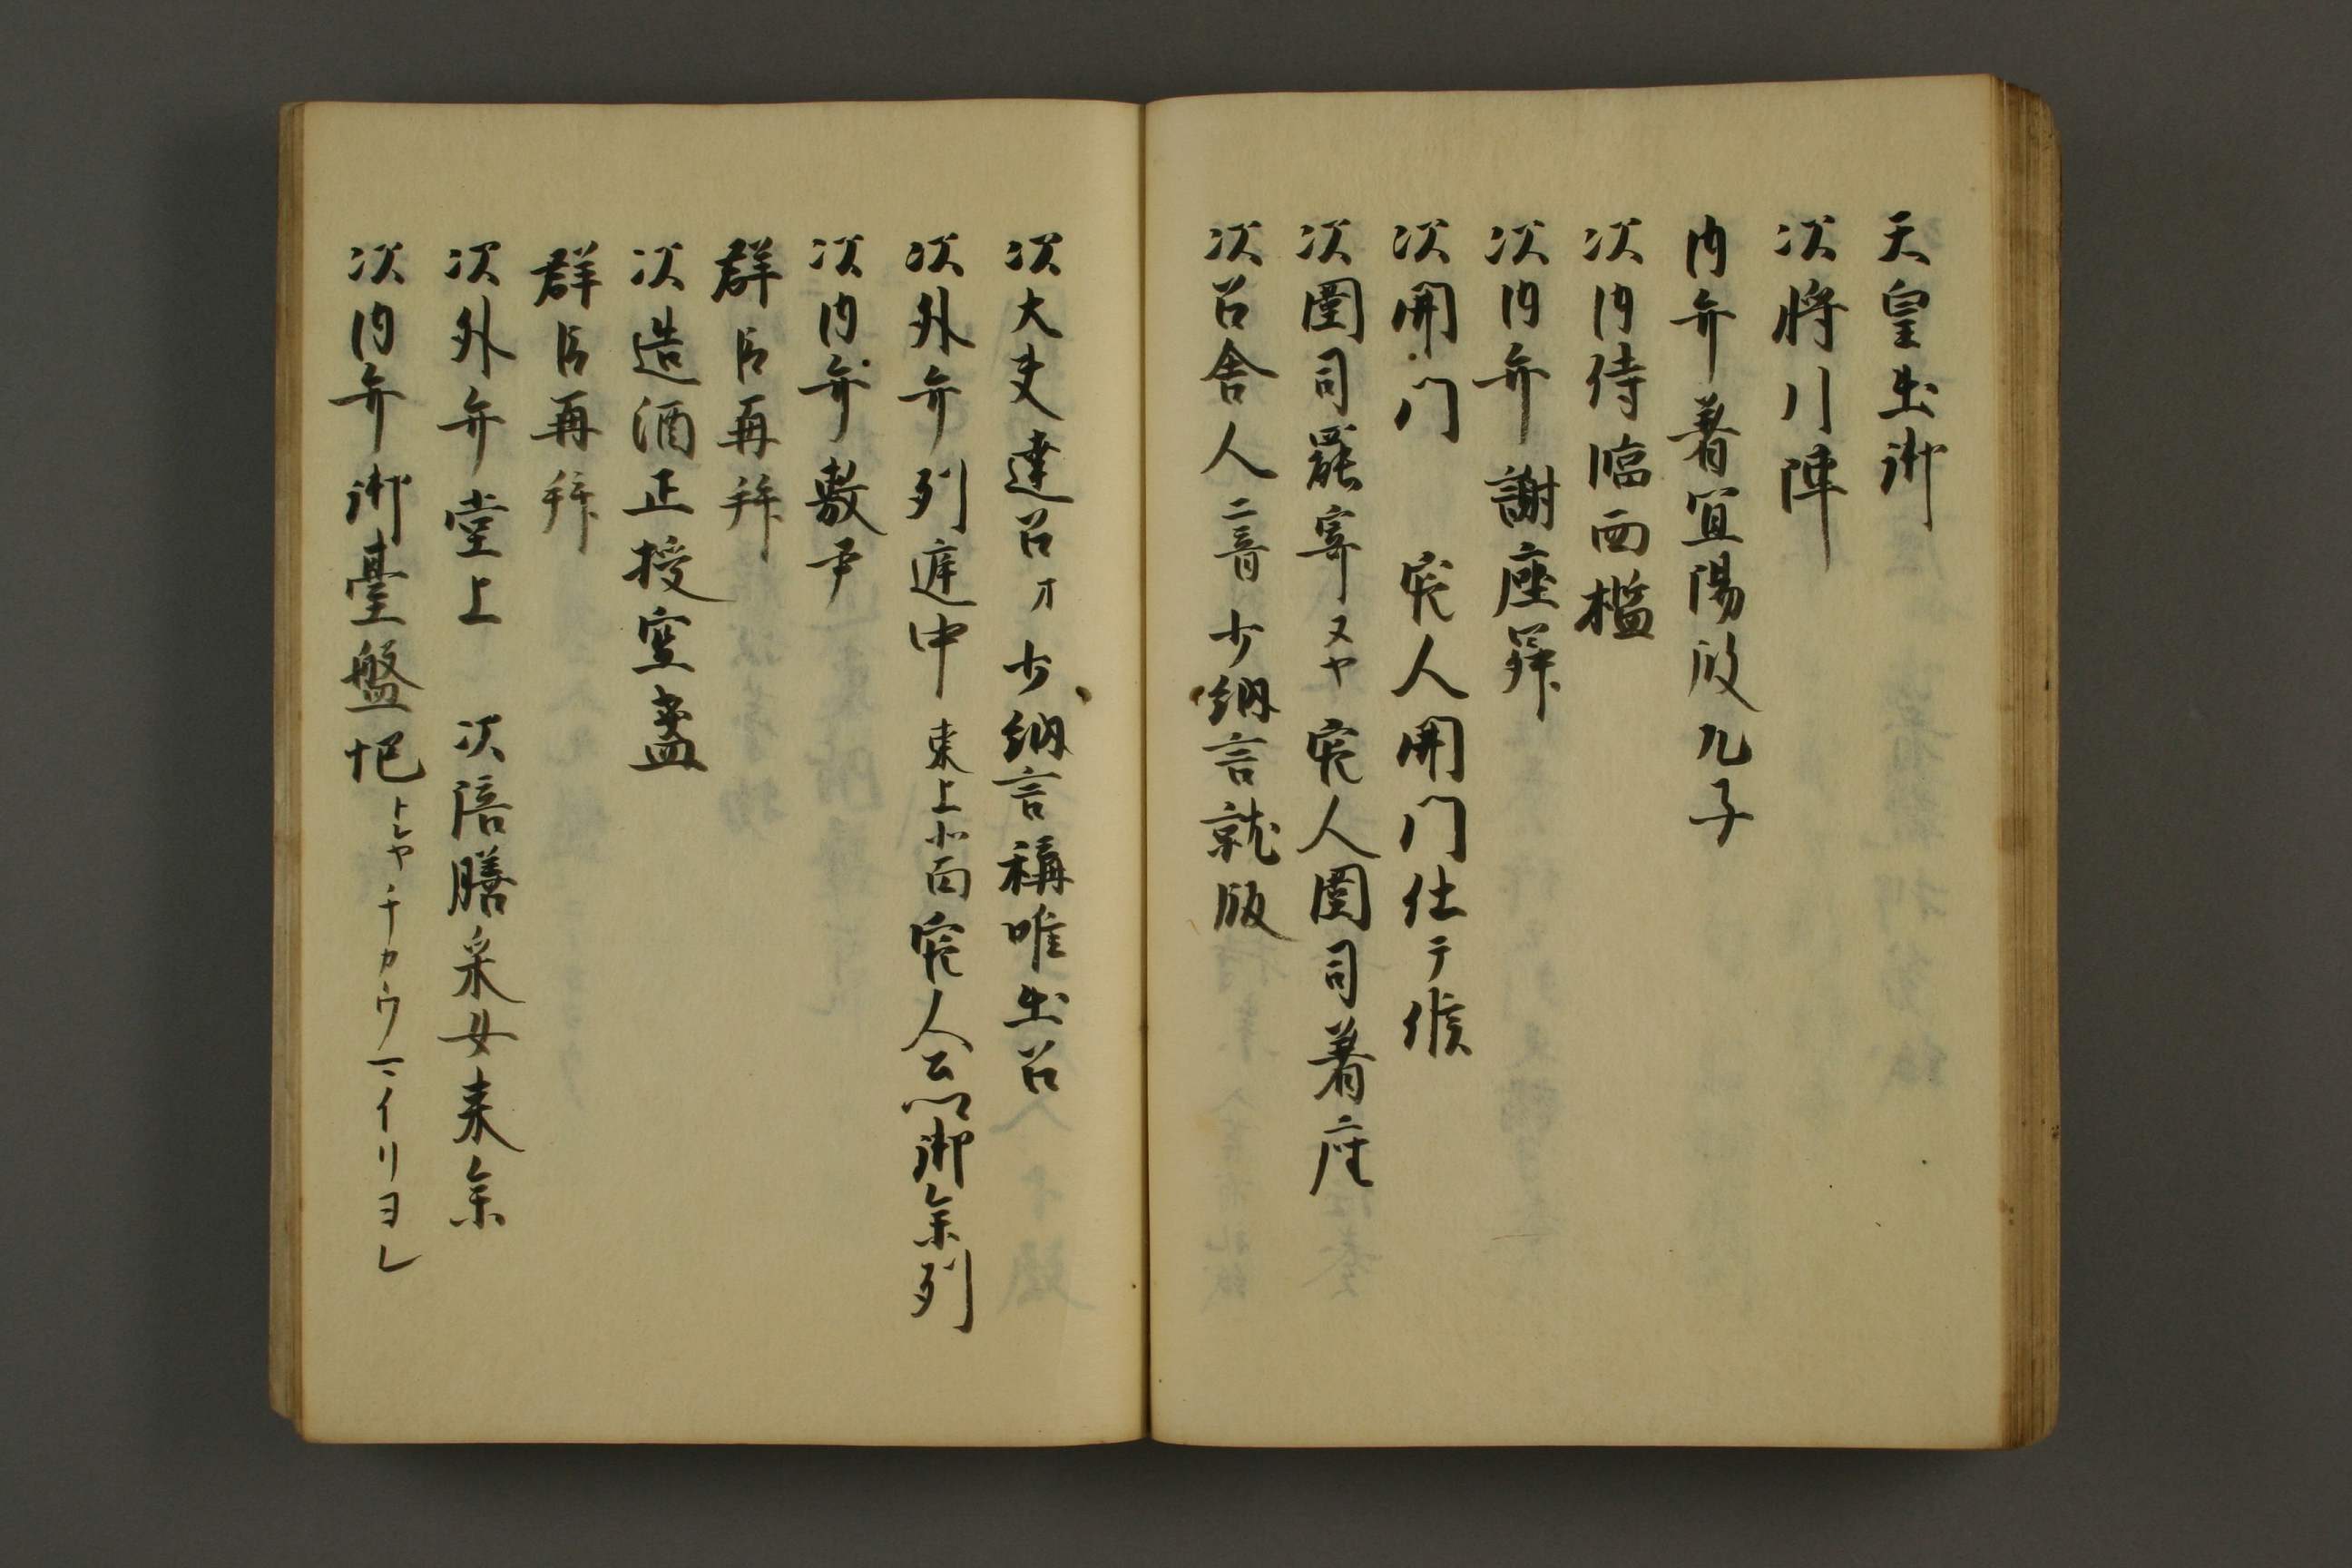 天皇出御
次将引陣
内弁著宜陽殿兀子
次内侍臨西檻
次内弁謝座拜
次開門　宛人開門仕テ候
次圍司罷寄ヌヤ宛人圍司著座
次召舎人二音少納言就版
次大夫達召オ少納言稱唯出召
次外弁列庭中東上北面宛人公卿参列
次内弁敷尹
群臣再拜
次造酒正授空盞
群臣再拜
次外弁堂上　次陪膳采女来参
次内弁御臺盤帊トレヤチカウマイリヨレ